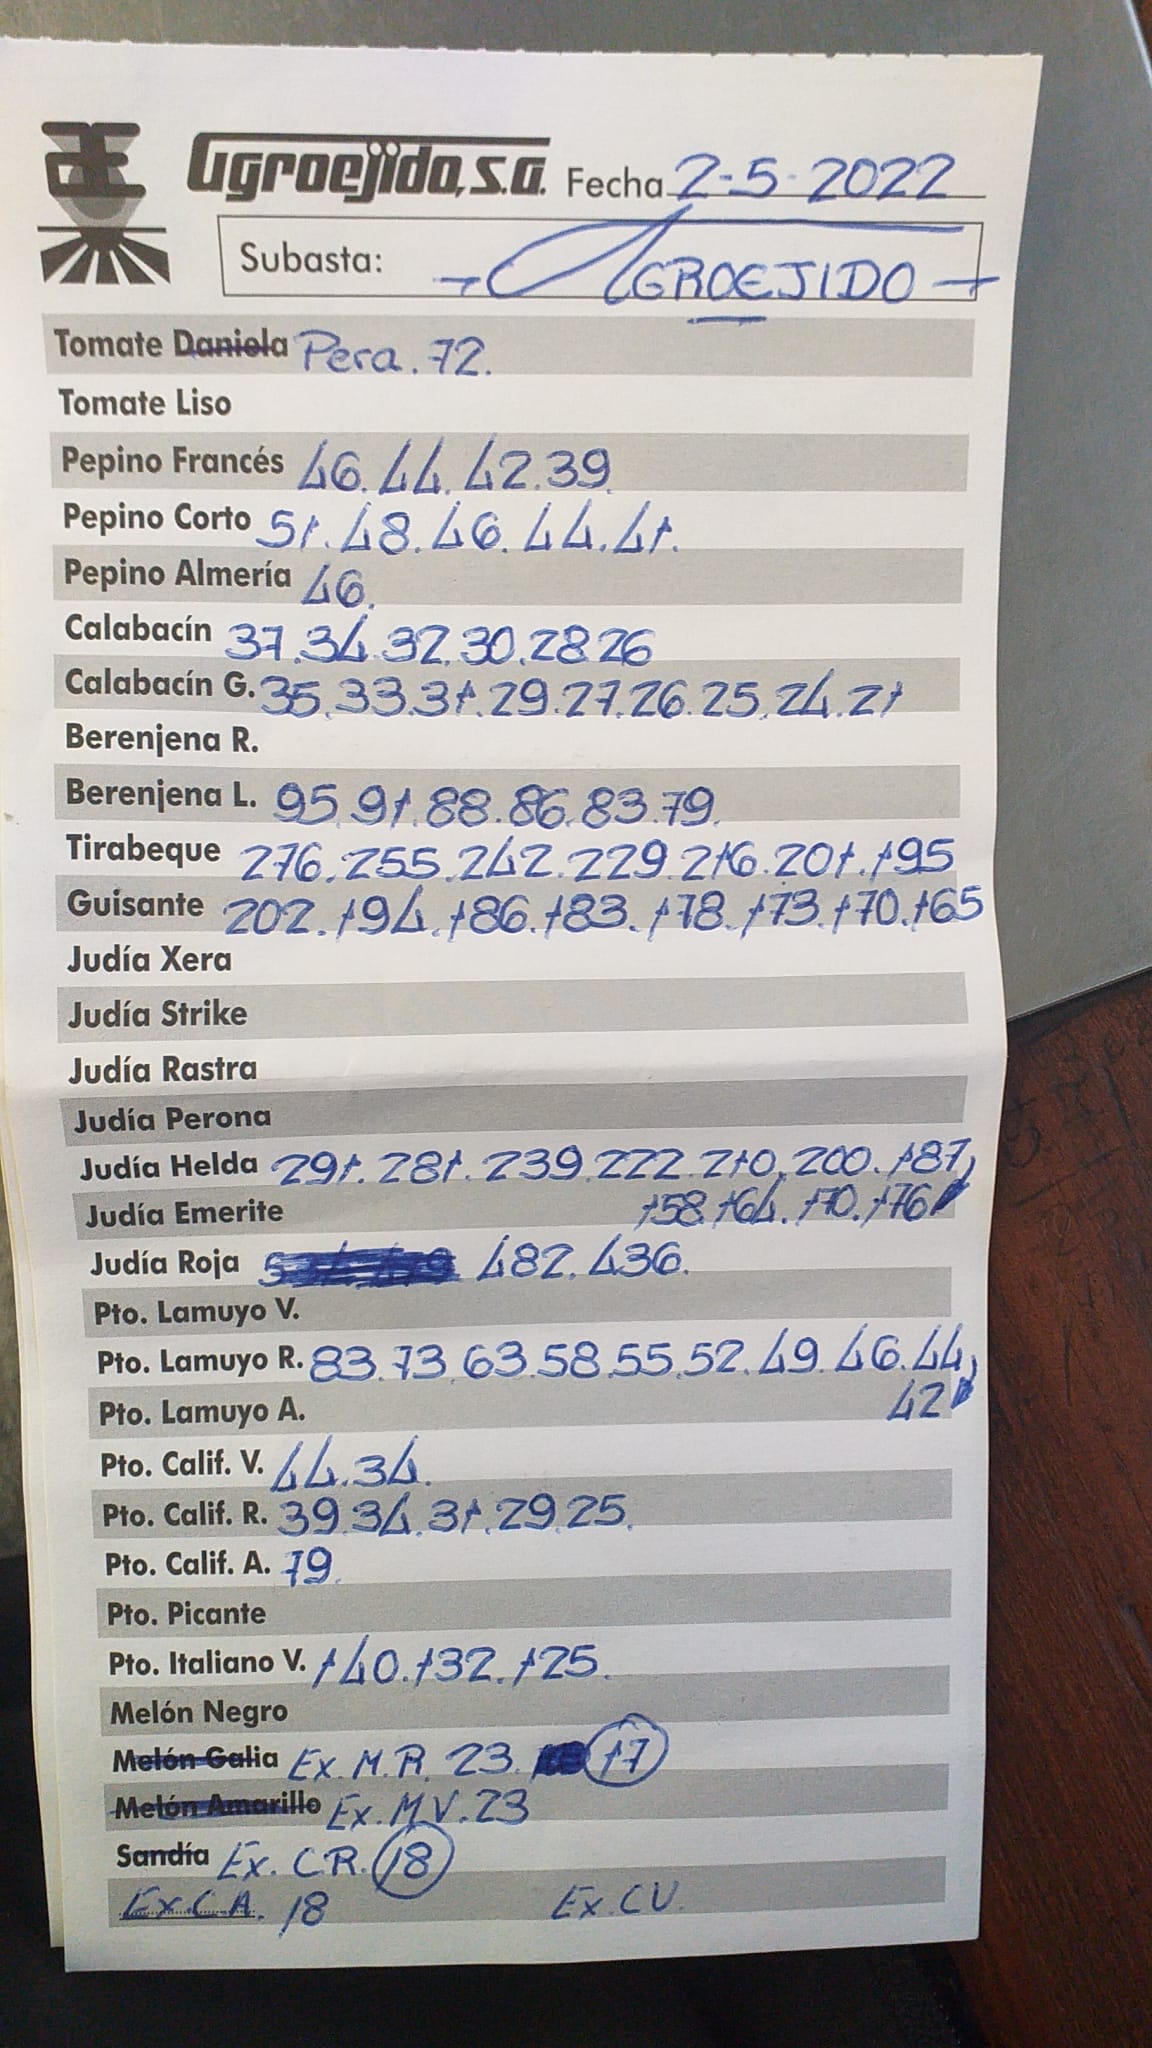 Agroejido, S.A. Fecha 2-5-2022
Subasta: AGROEJIDO
Tomate Daniela Pera. 72.
Tomate Liso
Pepino Francés 46. 44. 42. 39.
Pepino Corto 51. 48. 46. 44. 41.
Pepino Almería 46.
Calabacín 37. 34. 32. 30. 28. 26
Calabacín G. 35. 33. 31. 29. 27. 26. 25. 24. 21
Berenjena R.
Berenjena L. 95. 91. 88. 86. 83. 79.
Tirabeque 276. 255. 242. 229. 216. 201. 195
Guisante 202. 194. 186. 183. 178. 173. 170. 165
Judía Xera
Judía Strike
Judía Rastra
Judía Perona
Judía Helda 291. 281. 239. 222. 210. 200. 187
Judía Emerite 158. 164. 170. 176
Judía Roja 482. 436.
Pto. Lamuyo V.
Pto. Lamuyo R. 83. 73. 63. 58. 55. 52. 49. 46. 44
Pto. Lamuyo A. 42
Pto. Calif. V. 44. 34.
Pto. Calif. R. 39. 34. 31. 29. 25.
Pto. Calif. A. 79.
Pto. Picante
Pto. Italiano V. 140. 132. 125.
Melón Negro
Melón Galia Ex. M.R. 23. 17
Melón Amarillo Ex. M.V. 23
Sandía Ex. C.R. 18
Ex. C.A. 18 Ex. C.V.